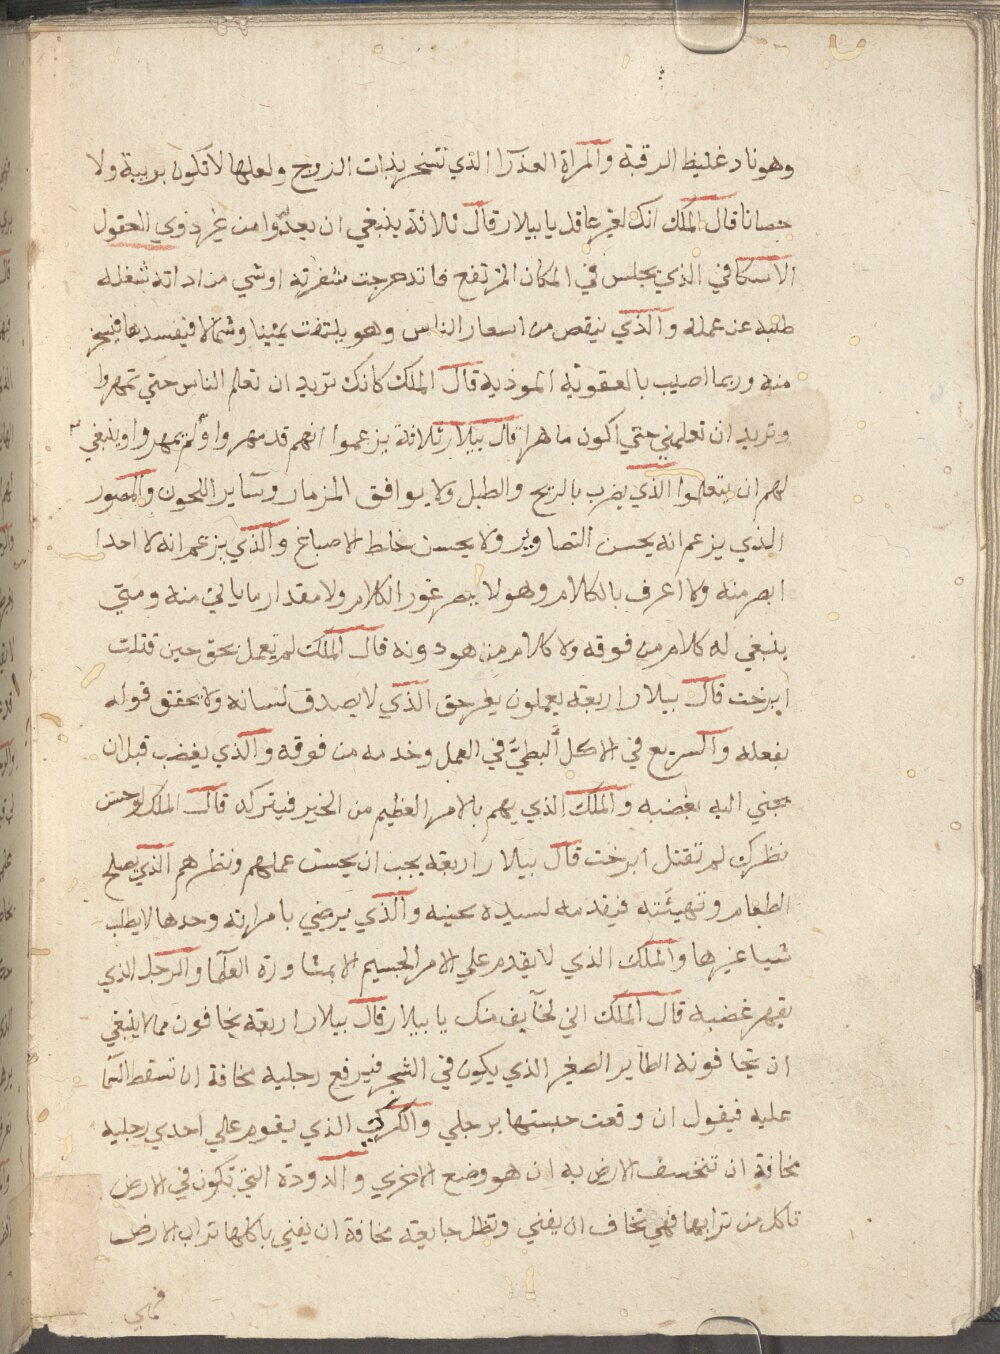 وهو نادر غليظ الرقبة والمراة العذرا الذي تتسخر بذات الزوج ولعلها لا تكون بريبة ولا
حصانا قال الملك انك لغير عاقل يا بيلار قال ثلاثة ينبغي ان يعدّوا من غير ذوي العقول
الاسكافي الذي يجلس في المكان المرتفع فاتدحرجت شفرته او شي من اداته شغله
طلبه عن عمله والذي ينقص من اسعار الناس وهو يلتفت يمينا وشمالا فيفسدها
منه وربما اصيب بالعقوبة الموذية قال الملك كانك تريد ان تعلم الناس حتي تمهروا
وتريد ان تعلمني حتي اكون ماهرا قال بيلار ثلاثة يزعموا انهم قد مهروا ولم يمهروا وينبغي
لهم ان يتعلموا الذي يضرب بالريح والطبل ولا يوافق المزمار وساير اللحون والمصور
الذي يزعم انه يحسن التصاوير ولا يحسن خلط الاصباغ والذي يزعم انه لا احدا
ابصر منه ولا اعرف بالكلام وهو لا يبصر غور الكلام ولا مقدار ما ياتي منه ومتي
ينبغي له كلام من فوقه ولا كلام من هو دونه قال الملك لم تعمل بحق حين قتلت
ايرخت قال بيلار اربعة يعملون بغير حق الذي لا يصدق لسانه ولا يحقق قوله
بفعله والسريع في الاكل البطيّ في العمل وخدمه من فوقه والذي يغضب قبل ان
يجني اليه بغضبه والملك الذي يهم بالامر العظيم من الخير فيتركه قال الملك لو حسن
نظرك لم تقتل ايرخت قال بيلار اربعة يجب ان يحسن عملهم ونظرهم الذي يصلح
الطعام وتهيئته فيقدمه لسيده بحينه والذي يرضي بامراته وحدها لا يطلب
شيا غيرها والملك الذي لا يقدم علي الامر الجسيم الا بمشاورة العلما والرجل الذي
يقهر غضبه قال الملك اني لخآيف منك يا بيلار قال بيلار اربعة يخافون مما لا ينبغي
ان يخافونه الطاير الصغير الذي يكون في الشجر فيرفع رجليه مخافة ان تسقط السما
عليه فيقول ان وقعت حبستها برجلي والكركي الذي يقوم علي احدي رجليه
مخافة ان تنخسف الارض به ان هو وضع الاخري والدودة التي تكون في الارض
تاكل من ترابها فهي تخاف ان يفني وتظل جايعة مخافة ان يفني باكلها تراب الارض
فهي